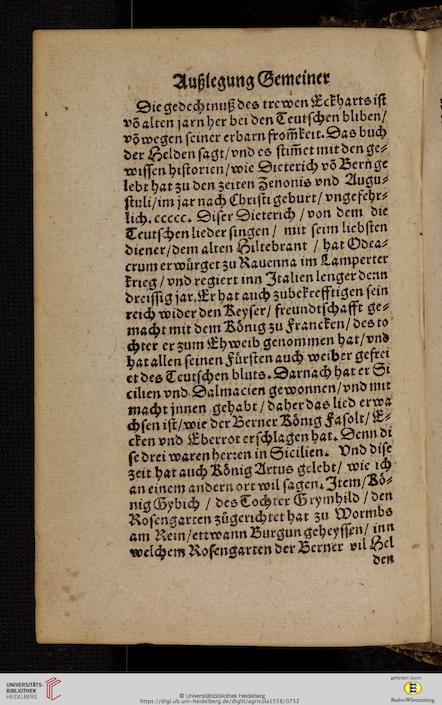 Außlegung Gemeiner
Die gedechtnuß des trewen Eckharts ist
võ alten jarn her bei den Teutschen bliben/
võ wegen seiner erbarn from̃keit. Das buch
der Helden sagt/vnd es stim̃et mit den ge-
wissen historien/wie Dieterich võ Bern ge
lebt hat zu den zeiten Zenonis vnd Augu-
stuli/im jar nach Christi geburt/vngefehr-
lich. ccccc. Diser Dieterich/von dem die
Teutschen lieder singen/ mit seim liebsten
diener/dem alten Hiltebrant / hat Odea-
crum erwürget zu Rauenna im Lamperter
krieg / vnd regiert inn Italien lenger denn
dreissig jar. Er hat auch zubekrefftigen sein
reich wider den Keyser/ freundtschafft ge-
macht mit dem König zu Francken/des to
chter er zum Ehweib genommen hat/vnd
hat allen seinen Fürsten auch weiber gefrei
et des Teutschen bluts. Darnach hat er Si
cilien vnd Dalmacien gewonnen/vnd mit
macht jnnen gehabt / daher das lied erwa
chsen ist/wie der Berner König Fasolt/E-
cken vnd Eberrot erschlagen hat. Denn di
se drei waren herren in Sicilien. Vnd dise
zeit hat auch König Artus gelebt/ wie ich
an einem andern ort wil sagen. Item/Kö-
nig Gybich / des Tochter Grymhild / den
Rosengarten zůgerichtet hat zu Wormbs
am Rein/ettwann Burgun geheyssen/ inn
welchem Rosengarten der Berner vil Hel
den
UNIVERSITÄTS-
BIBLIOTHEK
HEIDELBERG
© Universitätsbibliothek Heidelberg
https://digi.ub.uni-heidelberg.de/diglit/agricola1558/0752
gefördert durch
Baden-Württemberg